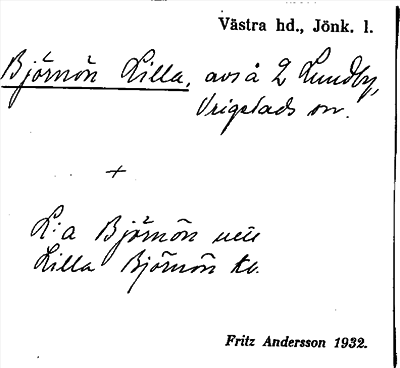 Västra hd., Jönk. l.
Björnön Lilla, avs å 2 Lundby,
Vrigstads sn.
+
L:a Björnön
Lilla Björnön
Fritz Andersson 1932.